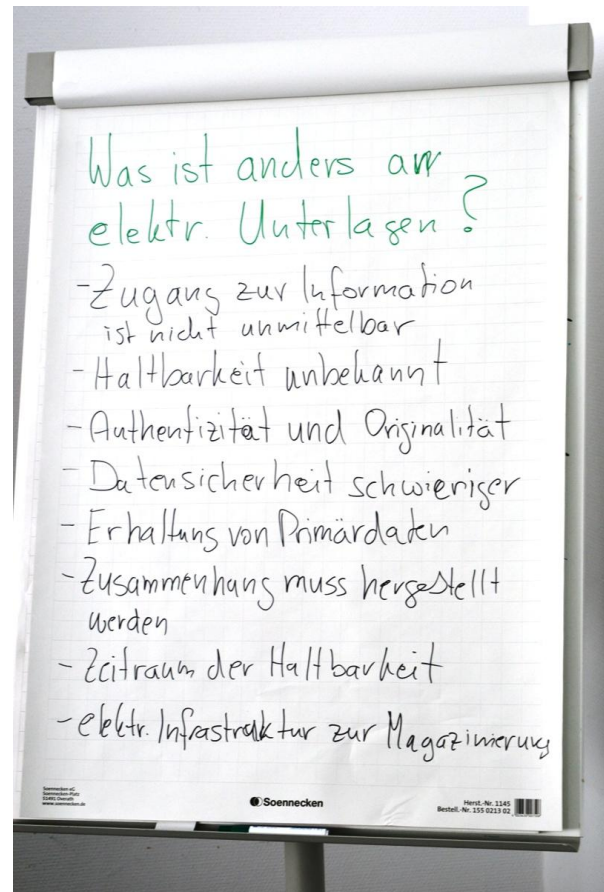 Was ist anders an
elektr. Unterlagen?
- Zugang zur Information
ist nicht unmittelbar
- Haltbarkeit unbekannt
- Authentizität und Originalität
- Datensicherheit schwieriger
- Erhaltung von Primärdaten
- Zusammenhang muss hergestellt
werden
- Zeitraum der Haltbarkeit
- elektr. Infrastruktur zur Magazinierung
Soennecken eG
Soennecken-Platz
51491 Overath
www.soennecken.de
Soennecken
Herst.-Nr. 1145
Bestell.-Nr. 155 0213 02